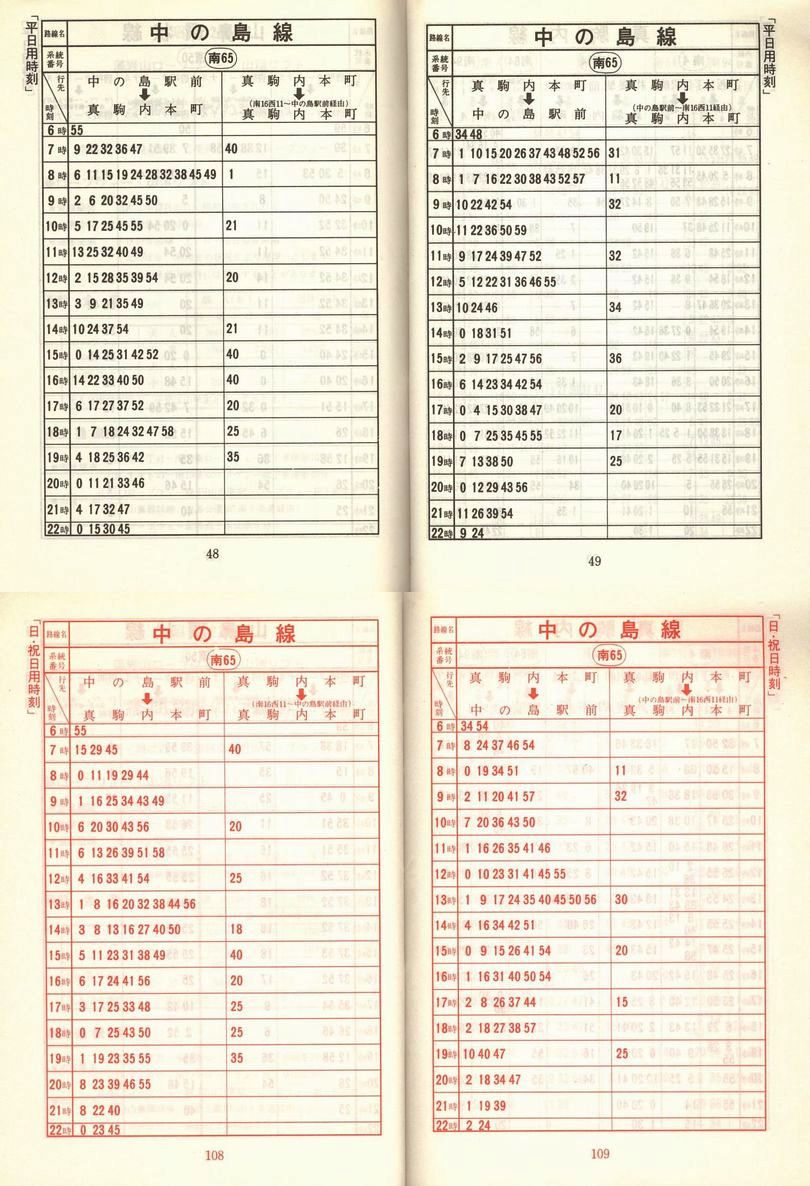 「平日用時刻」
路線名 中の島線
系統番号 南65
行先 時刻 中の島駅前 ↓ 真駒内本町 真駒内本町 ↓ (南16西11〜中の島駅前経由) 真駒内本町
6時 55
7時 9 22 32 36 47 40
8時 6 11 15 19 24 28 32 38 45 49 1
9時 2 6 20 32 45 50
10時 5 17 25 45 55 21
11時 13 25 32 40 49
12時 2 15 28 35 39 54 20
13時 3 9 21 35 49
14時 10 24 37 54 21
15時 0 14 25 31 42 52 40
16時 14 22 33 40 50 40
17時 6 17 27 37 52 20
18時 1 7 18 24 32 47 58 25
19時 4 18 25 36 42 35
20時 0 11 21 33 46
21時 4 17 32 47
22時 0 15 30 45
48
「平日用時刻」
路線名 中の島線
系統番号 南65
行先 時刻 真駒内本町 ↓ 中の島駅前 真駒内本町 ↓ (中の島駅前〜南16西11経由) 真駒内本町
6時 34 48
7時 1 10 15 20 26 37 43 48 52 56 31
8時 1 7 16 22 30 38 43 52 57 11
9時 10 22 42 54 32
10時 11 22 36 50 59
11時 9 17 24 39 47 52 32
12時 5 12 22 31 36 46 55
13時 10 24 46 34
14時 0 18 31 51
15時 2 9 17 25 47 56 36
16時 6 14 23 34 42 54
17時 0 4 15 30 38 47 20
18時 0 7 25 35 45 55 17
19時 7 13 38 50 25
20時 0 12 29 43 56
21時 11 26 39 54
22時 9 24
49
「日・祝日用時刻」
路線名 中の島線
系統番号 南65
行先 時刻 中の島駅前 ↓ 真駒内本町 真駒内本町 ↓ (南16西11〜中の島駅前経由) 真駒内本町
6時 55
7時 15 29 45 40
8時 0 11 19 29 44
9時 1 16 25 34 43 49
10時 6 20 30 43 56 20
11時 6 13 26 39 51 58
12時 4 16 33 41 54 25
13時 1 8 16 20 32 38 44 56
14時 3 8 13 16 27 40 50 18
15時 5 11 23 31 38 49 40
16時 6 17 24 41 56 20
17時 3 17 25 33 48 25
18時 0 7 25 43 50 25
19時 1 19 23 35 55 35
20時 8 23 39 46 55
21時 8 22 40
22時 0 23 45
108
「日・祝日用時刻」
路線名 中の島線
系統番号 南65
行先 時刻 真駒内本町 ↓ 中の島駅前 真駒内本町 ↓ (中の島駅前〜南16西11経由) 真駒内本町
6時 34 54
7時 8 24 37 46 54
8時 0 19 34 51 11
9時 2 11 20 41 57 32
10時 7 20 36 43 50
11時 1 16 26 35 41 46
12時 0 10 23 31 41 45 55
13時 1 9 17 24 35 40 45 50 56 30
14時 4 16 34 42 51
15時 0 9 15 26 41 54 20
16時 1 16 31 40 50 54
17時 2 8 26 37 44 15
18時 2 18 27 38 57
19時 10 40 47 25
20時 2 18 34 47
21時 1 19 39
22時 2 24
109